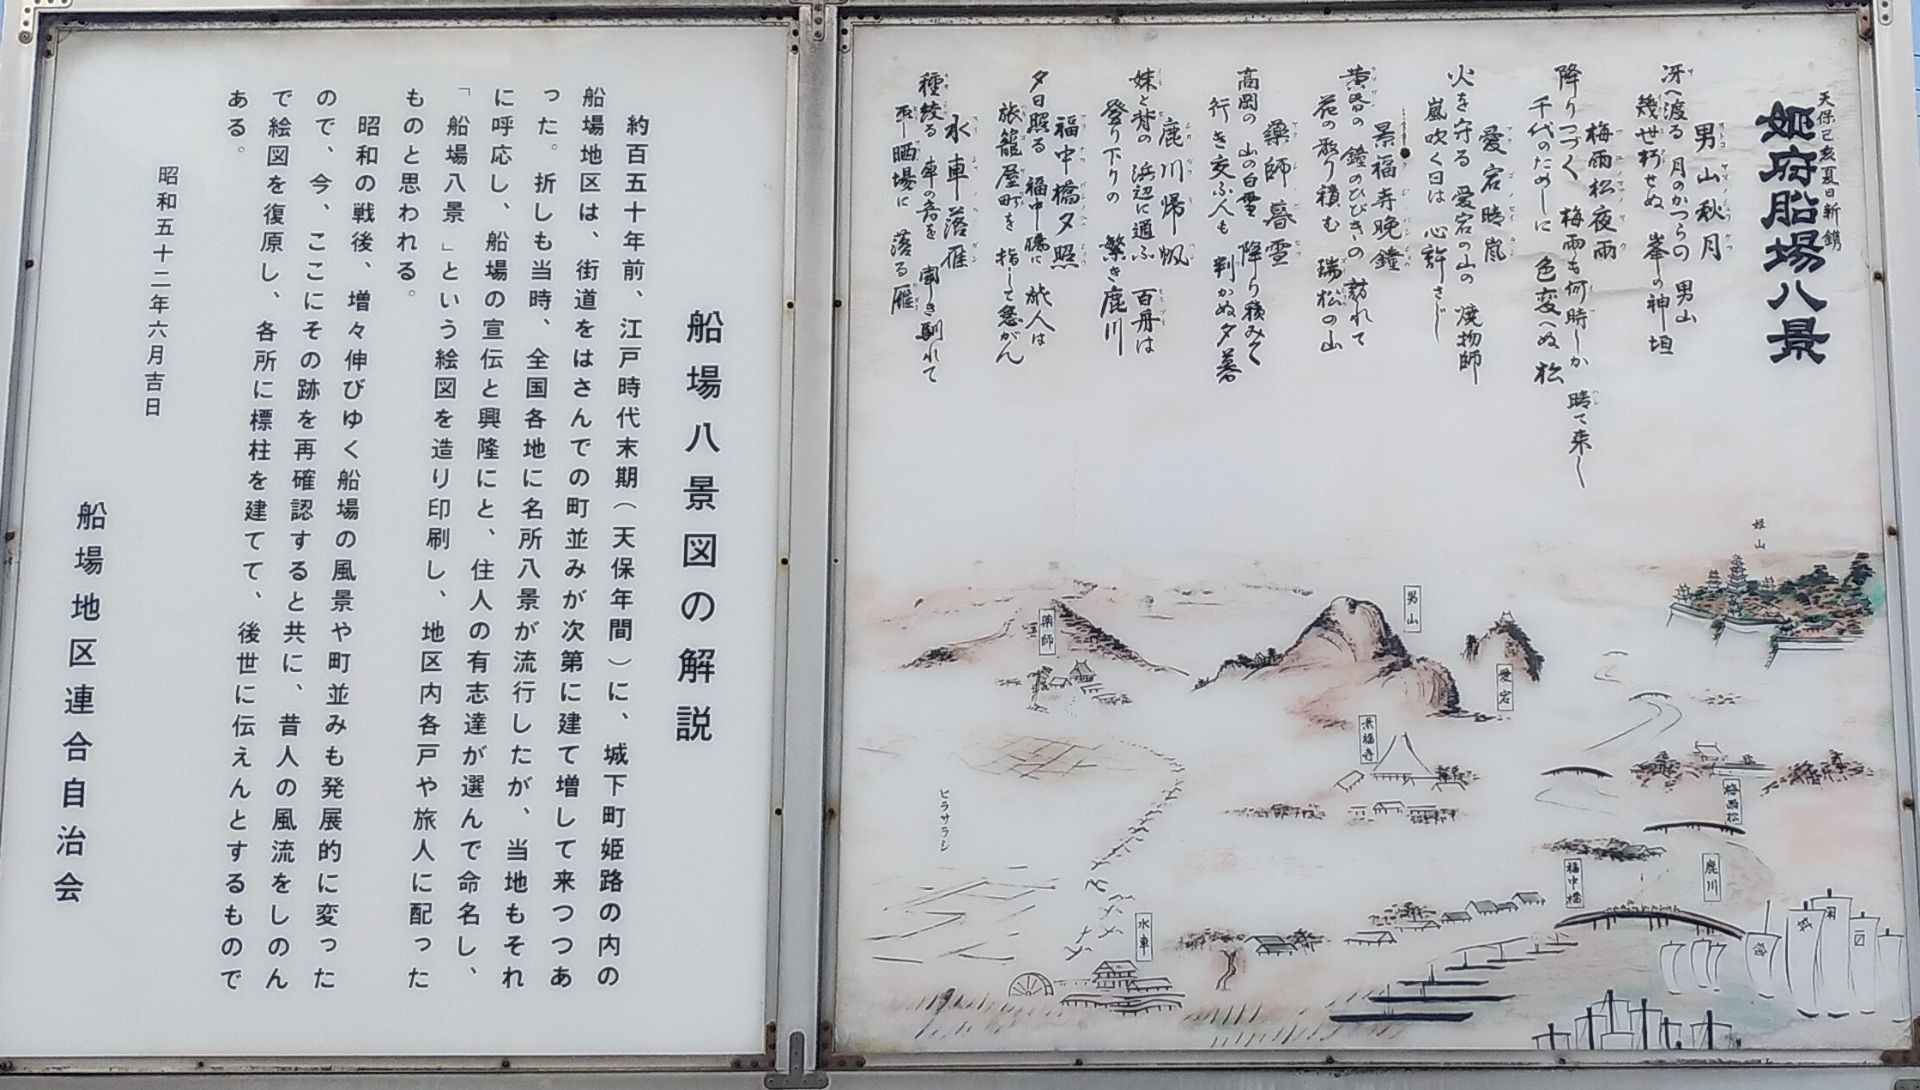 天保己亥夏日新鐫
姫府船場八景
男山秋月
冴へ渡る 月のかつらの 男山
幾世朽せぬ 峯の神垣
梅雨松夜雨
降りつづく 梅雨も何時しか 晴て来し
千代のためしに 色変へぬ 松
愛宕晴嵐
火を守る 愛宕の山の 焼物師
嵐吹く日は 心許さじ
景福寺晩鐘
黄昏の 鐘のひびきの 訪れて
花の散り積む 瑞松の山
薬師暮雪
高岡の 山の白雪 降り積みて
行き交ふ人も 判かぬ夕暮
鹿川帰帆
妹と背の 浜辺に通ふ 百舟は
登り下りの 繁き鹿川
福中橋夕照
夕日照る 福中橋に 旅人は
旅籠屋町を 指して急がん
水車落雁
種絞る 車の音を 聞き馴れて
晒場に 落る雁
姫山
男山
薬師
愛宕
景福寺
梅雨松
ヒラサラシ
鹿川
福中橋
水車
船場八景図の解説
約百五十年前、江戸時代末期（天保年間）に、城下町姫路の内の
船場地区は、街道をはさんでの町並みが次第に建て増して来つつあ
った。折しも当時、全国各地に名所八景が流行したが、当地もそれ
に呼応し、船場の宣伝と興隆にと、住人の有志達が選んで命名し、
「船場八景」という絵図を造り印刷し、地区内各戸や旅人に配った
ものと思われる。
昭和の戦後、増々伸びゆく船場の風景や町並みも発展的に変った
ので、今、ここにその跡を再確認すると共に、昔人の風流をしのん
で絵図を復原し、各所に標柱を建てて、後世に伝えんとするもので
ある。
昭和五十二年六月吉日
船場地区連合自治会